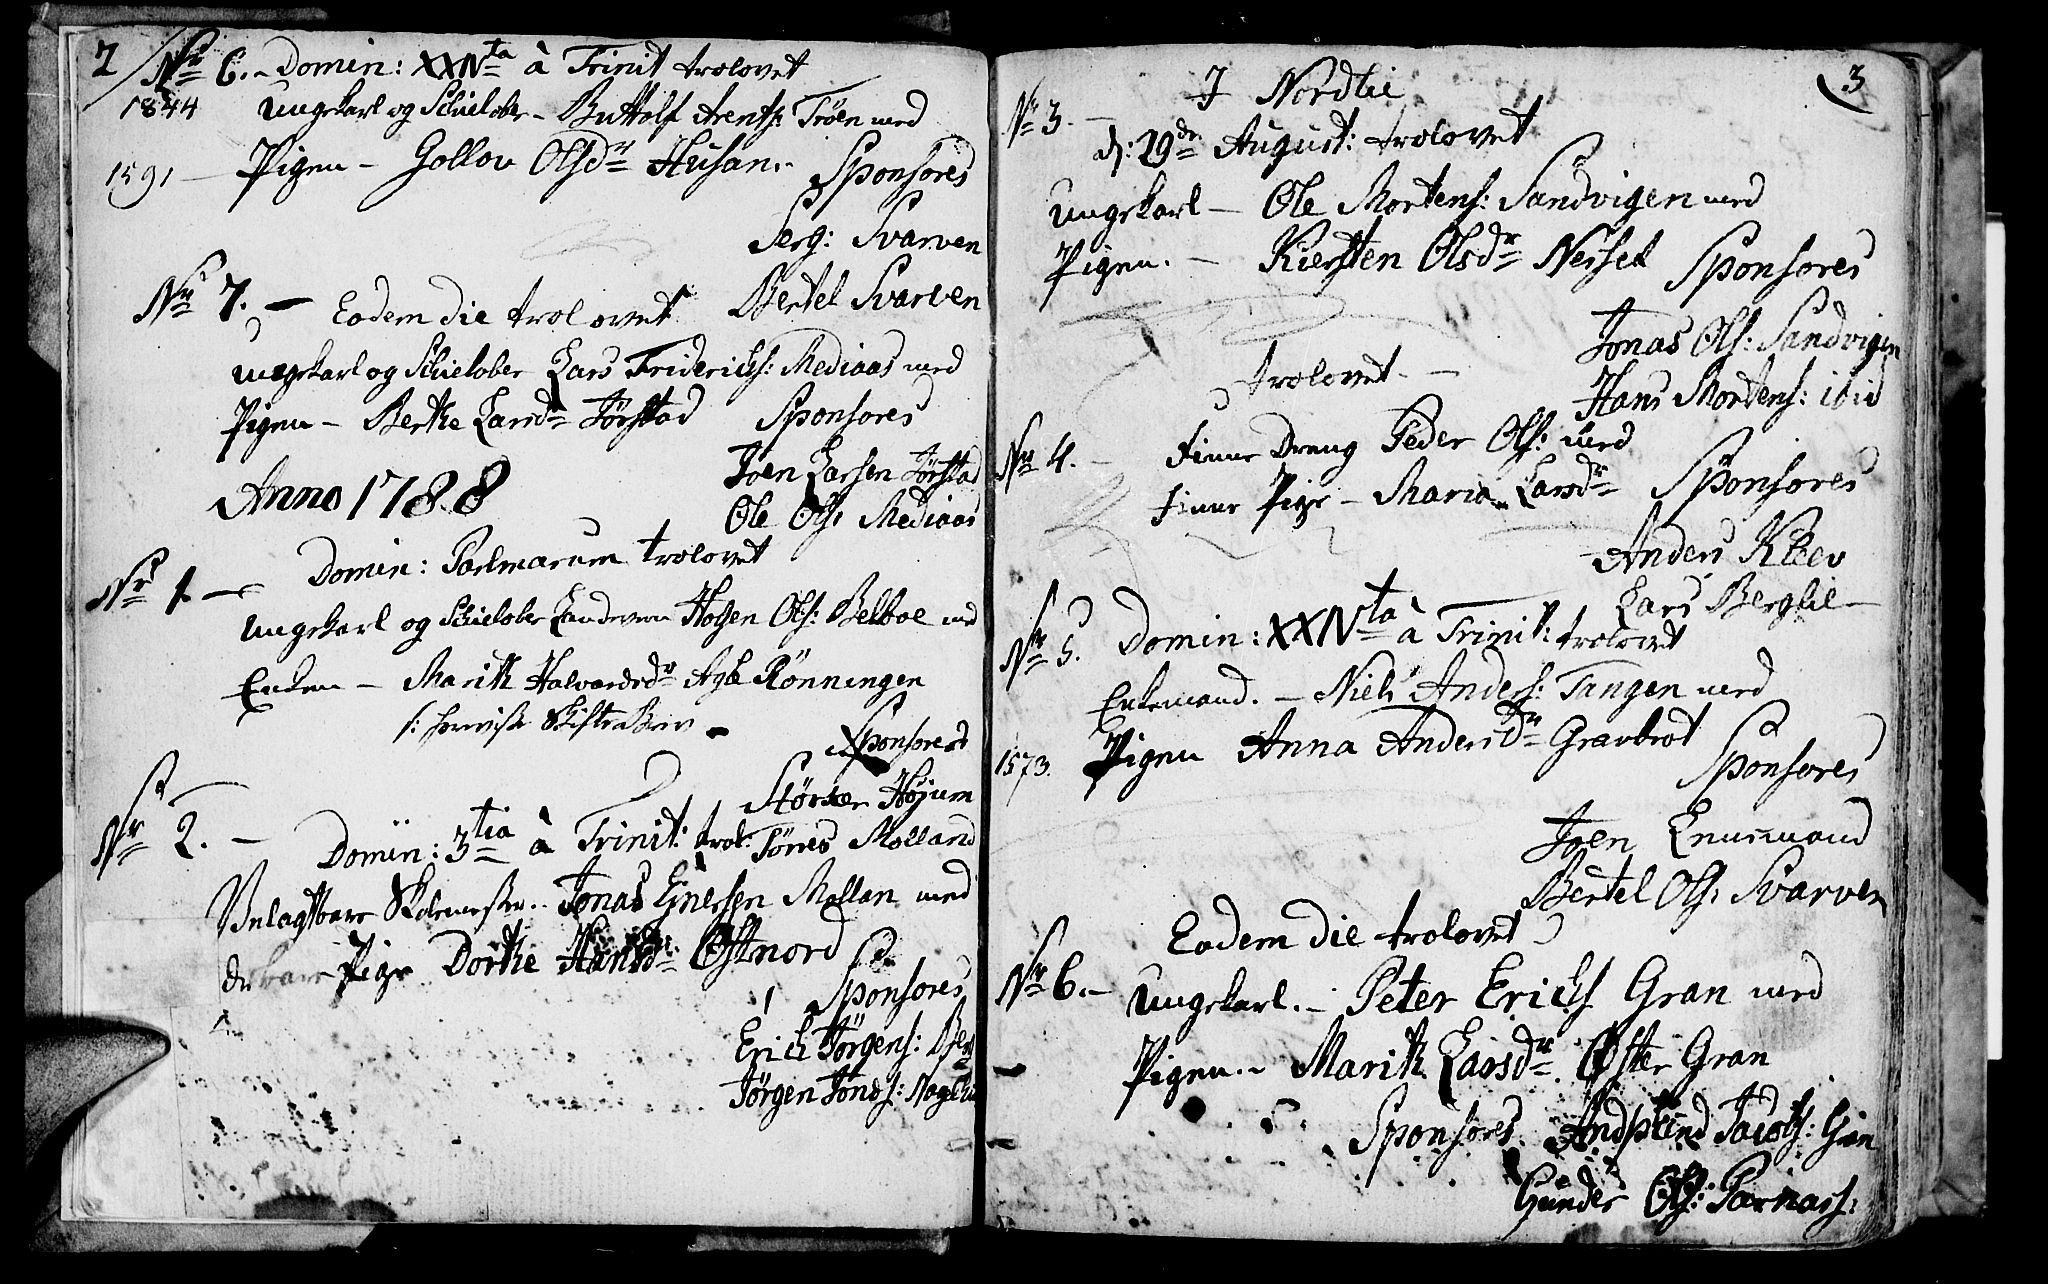 2
Nr 6. - Domin: XXIVta à Trinit trolovet
1844 Ungekarl og Schielober - Buttolf Arents: Tröen med
1591 - Pigen - Gollov Olsdr Husan. Sponsores
Serg: Svarven
Bertel Svarven
Nr 7. - Eodem die trolovet
Ungekarl og Schielober Lars Friderichs: Mediaas med
Pigen - Berthe Larsdr Förstad Sponsores
Joen Larsen Förstad
Ole Ols: Mediaas
Anno 1788
Nr 1. - Domin: Palmarum trolovet
Ungekarl og Schielober Holgen Ols: Belboe med
Enken - Marith Halvardsdr Agle Rönningen
Skifte Brev -
Sponsores
Störker Höjum
Törres Molland
Nr 2. - Domin: 3tia à Trinit: trol:
Velagtbare Skolemester. Jonas Enersen Mollan med
Pige Dorthe Hansdr Östnord
Sponsores
Erich Jörgens:
Jörgen Jonds:
3
I Nordlie
Nr 3. - d: 29de August: trolovet
Ungekarl - Ole Mortens: Sandvigen med
Pigen. - Kiersten Olsdr Nesset Sponsores
Jonas Ols: Sandvigen
Hans Mortens: ibid
trolovet -
Nr 4. - Finne Dreng Peder Ols: med
Finne Pige - Maria Larsdr Sponsores
Anders Kleev
Lars Berglie
Nr 5. Domin: XXIVta à Trinit: trolovet
Enkemand. - Niels Anders: Tangen med
1573. Pigen Anna Andersdr Gravbrot
Sponsores
Joen
Bertel Ols: Svarven
Eodem die trolovet
Nr 6. - Ungekarl. - Peter Erichs Gran med
Pigen. - Marith Larsdr Öster Gran
Sponsores. Jacobs: Gran
Gunder Ols: